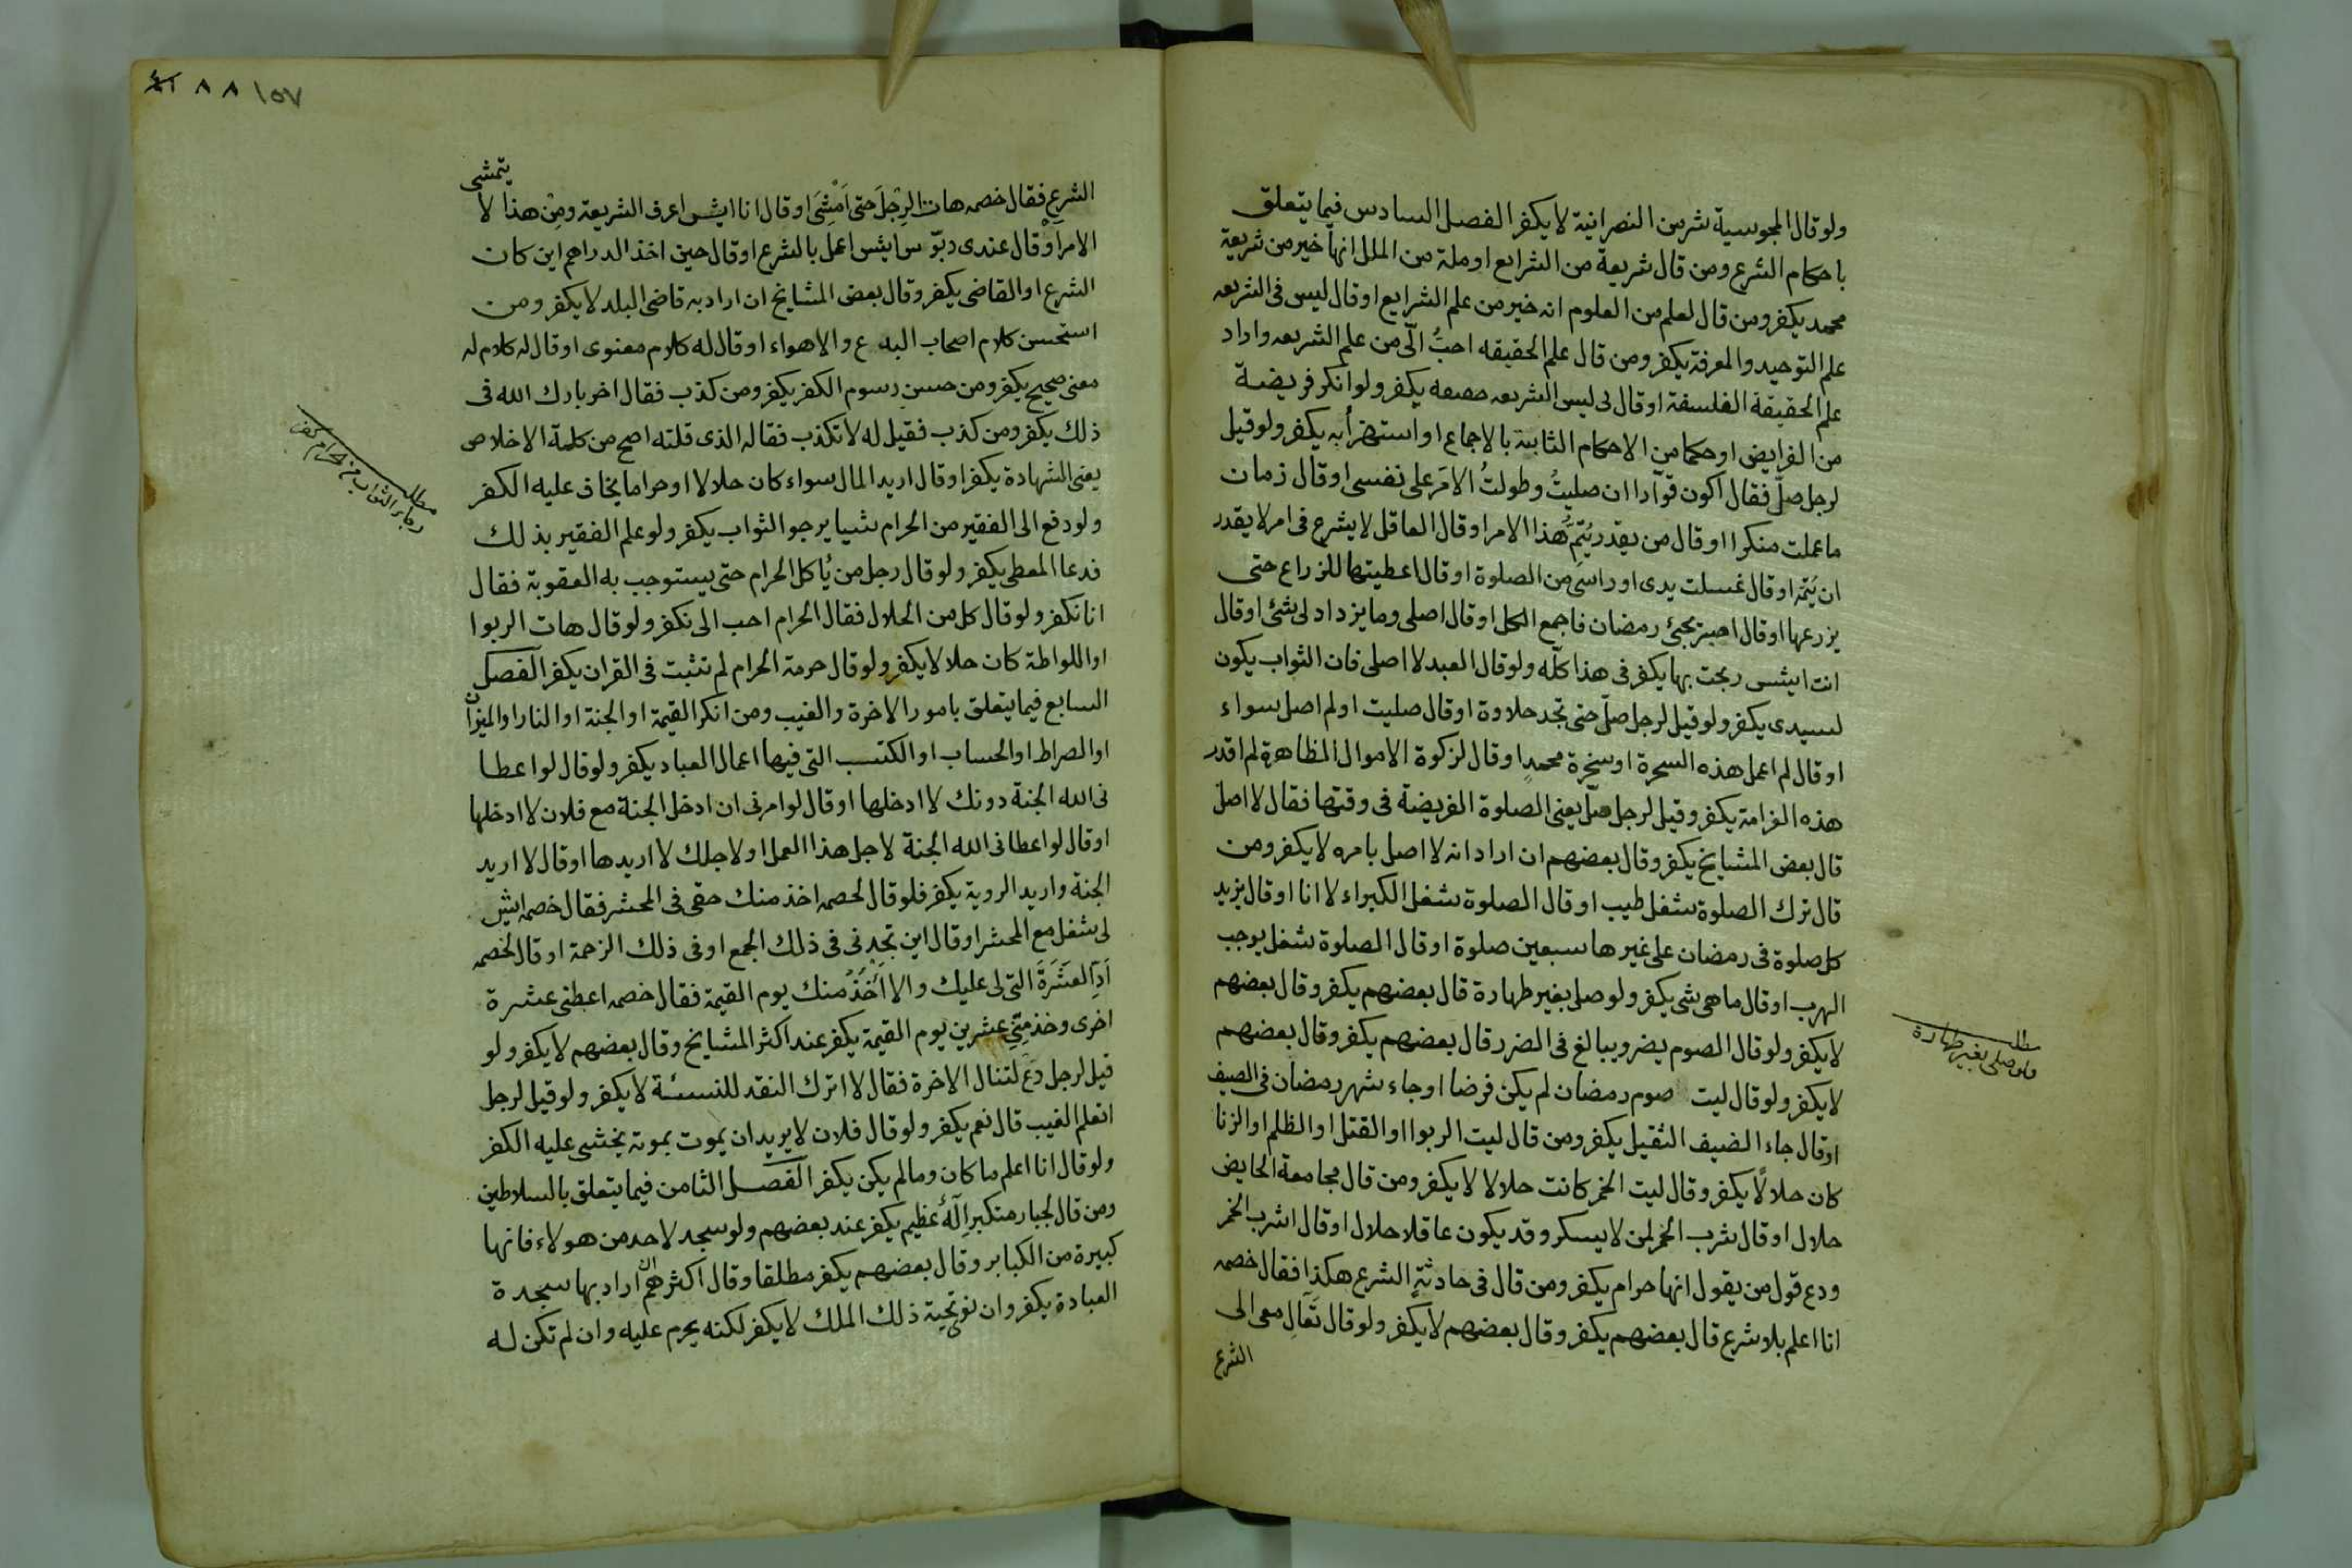 ولو قال المجوسية شر من النصرانية لا يكفر الفصل السادس فيما يتعلق
باحكام الشرع ومن قال شريعة من الشرايع او ملة من الملل انها خير من شريعة
محمد يكفر ومن قال لعلم من العلوم انه خير من علم الشرايع او قال ليس فى الشريعه
علم التوحيد والمعرفة يكفر ومن قال علم الحقيقه احبُّ الّى من علم الشريعه واراد
علم الحقيقة الفلسفة او قال لى ليس الشريعه يكفر ولو انكر فريضة
من الفرايض او حكما من الاحكام الثابتة بالاجماع او استهزأ به يكفر ولو قيل
لرجل صلّ فقال اكون قوّادا ان صليتُ وطولتُ الامرَ على نفسى او قال زمان
ما عملت منكرا او قال من يقدر يُتِمُّ هذا الامر او قال العاقل لا يشرع فى امر لا يقدر
ان يُتمّه او قال غسلت يدى او راسى من الصلوة او قال اعطيتها للزراع حتى
يزرعها او قال اصبر يجئ رمضان فاجمع الكل او قال اصلى وما يزداد لى شئ او قال
انت ايش ربحت بها يكفر فى هذا كلّه ولو قال العبد لا اصلى فان الثواب يكون
لسيدى يكفر ولو قيل لرجل صلّ حتى تجد حلاوة او قال صليت او لم اصل سواء
او قال لم اعمل هذه السخرة او سخرة محمدٍ او قال لزكوة الاموال الظاهرة لم اقدر
هذه الغرامة يكفر وقيل لرجل صلّ يعنى الصلوة الفريضة فى وقتها فقال لا اصل
قال بعض المشايخ يكفر وقال بعضهم ان اراد انه لا اصل بامره لا يكفر ومن
قال ترك الصلوة شغل طيب او قال الصلوة شغل الكبراء لا انا او قال يزيد
كل صلوة فى رمضان على غيرها سبعين صلوة او قال الصلوة شغل يوجب
الهرب او قال ما هى شى يكفر ولو صلى بغير طهارة قال بعضهم يكفر وقال بعضهم
لا يكفر ولو قال الصوم يضر ويبالغ فى الضرر قال بعضهم يكفر وقال بعضهم
لا يكفر ولو قال ليت صوم رمضان لم يكن فرضا او جاء شهر رمضان فى الصيف
او قال جاء الضيف الثقيل يكفر ومن قال ليت الربوا او القتل او الظلم او الزنا
كان حلالًا يكفر وقال ليت الخمر كانت حلالا لا يكفر ومن قال مجامعة الحايض
حلال او قال شرب الخمر لمن لا يسكر وقد يكون عاقلا حلال او قال اشرب الخمر
ودع قول من يقول انها حرام يكفر ومن قال فى حادثةٍ الشرع هكذا فقال خصمه
انا اعلم بلا شرع قال بعضهم يكفر وقال بعضهم لا يكفر ولو قال تَعَالِ معى الى
الشرع
مطلب
ولو صلى بغير طهارة
١٥٧ ٨٨
يتمشى
الشرع فقال خصمه هات الرجل حتى اَمْشِىَ او قال انا ايش اعرف الشريعه ومِنْ هذا لا
الامر اَوْ قال عندى دبّوس ايش اعمل بالشرع او قال حين اخذ الدراهم اين كان
الشرع او القاضى يكفر وقال بعض المشايخ ان اراد به قاضى البلد لا يكفر ومن
استحسن كلام اصحاب البدع والاهواء او قال له كلام معنوى او قال له كلام له
معنى صحيح يكفر ومن حسن رسوم الكفر يكفر ومن كذب فقال اخر بارك الله فى
ذلك يكفر ومن كذب فقيل له لا تكذب فقاله الذى قلته اصح من كلمة الاخلاص
يعنى الشهادة يكفر او قال اريد المال سواء كان حلالا او حراما يخاف عليه الكفر
ولو دفع الى الفقير من الحرام شيا يرجو الثواب يكفر ولو علم الفقير بذلك
فدعا المعطى يكفر ولو قال رجل من يُاكل الحرام حتى يستوجب به العقوبة فقال
انا نكفر ولو قال كل من الحلال فقال الحرام احب الى نكفر ولو قال هات الربوا
او اللواطة كان حلالا يكفر ولو قال حرمة الحرام لم تثبت فى القران يكفر الفصل
السابع فيما يتعلق بامور الاخرة والغيب ومن انكر القيمة او الجنة او النار او الميزان
او الصراط او الحساب او الكتب التى فيها اعمال العباد يكفر ولو قال لو اعطا
نى الله الجنة دونك لا ادخلها او قال لو امرنى ان ادخل الجنة مع فلان لا ادخلها
او قال لو اعطانى الله الجنة لاجل هذا العمل او لاجلك لا اريدها او قال لا اريد
الجنة واريد الروية يكفر فلو قال لخصمه اخذ منك حقى فى المحشر فقال خصمه ايش
لى شغل مع المحشر او قال اين تجدنى فى ذلك الجمع او فى ذلك الزحمة او قال لخصمه
اَدِّ العَشَرَةَ التى لى عليك والا أَخُذُ منك يوم القيمة فقال خصمه اعطنى عشرة
اخرى وخذ مِنّى عشرين يوم القيمة يكفر عند اكثر المشايخ وقال بعضهم لا يكفر ولو
قيل لرجل دَعْ لتنال الاخرة فقال لا اترك النقد للنسئة لا يكفر ولو قيل لرجل
اتعلم الغيب قال نعم يكفر ولو قال فلان لا يريد ان يموت بموته يخشى عليه الكفر
ولو قال انا اعلم ما كان وما لم يكن يكفر الفصل الثامن فيما يتعلق بالسلاطين
ومن قال لجبار متكبر اِلَهٌ عظيم يكفر عند بعضهم ولو سجد لاحد من هولاء فانها
كبيرة من الكباير وقال بعضهم يكفر مطلقا وقال اكثرهم ان اراد بها سجدة
العبادة يكفر وان نوى تحية ذلك الملك لا يكفر لكنه يحرم عليه وان لم تكن له
مطلب
رجاء الثواب من الحرام كفر